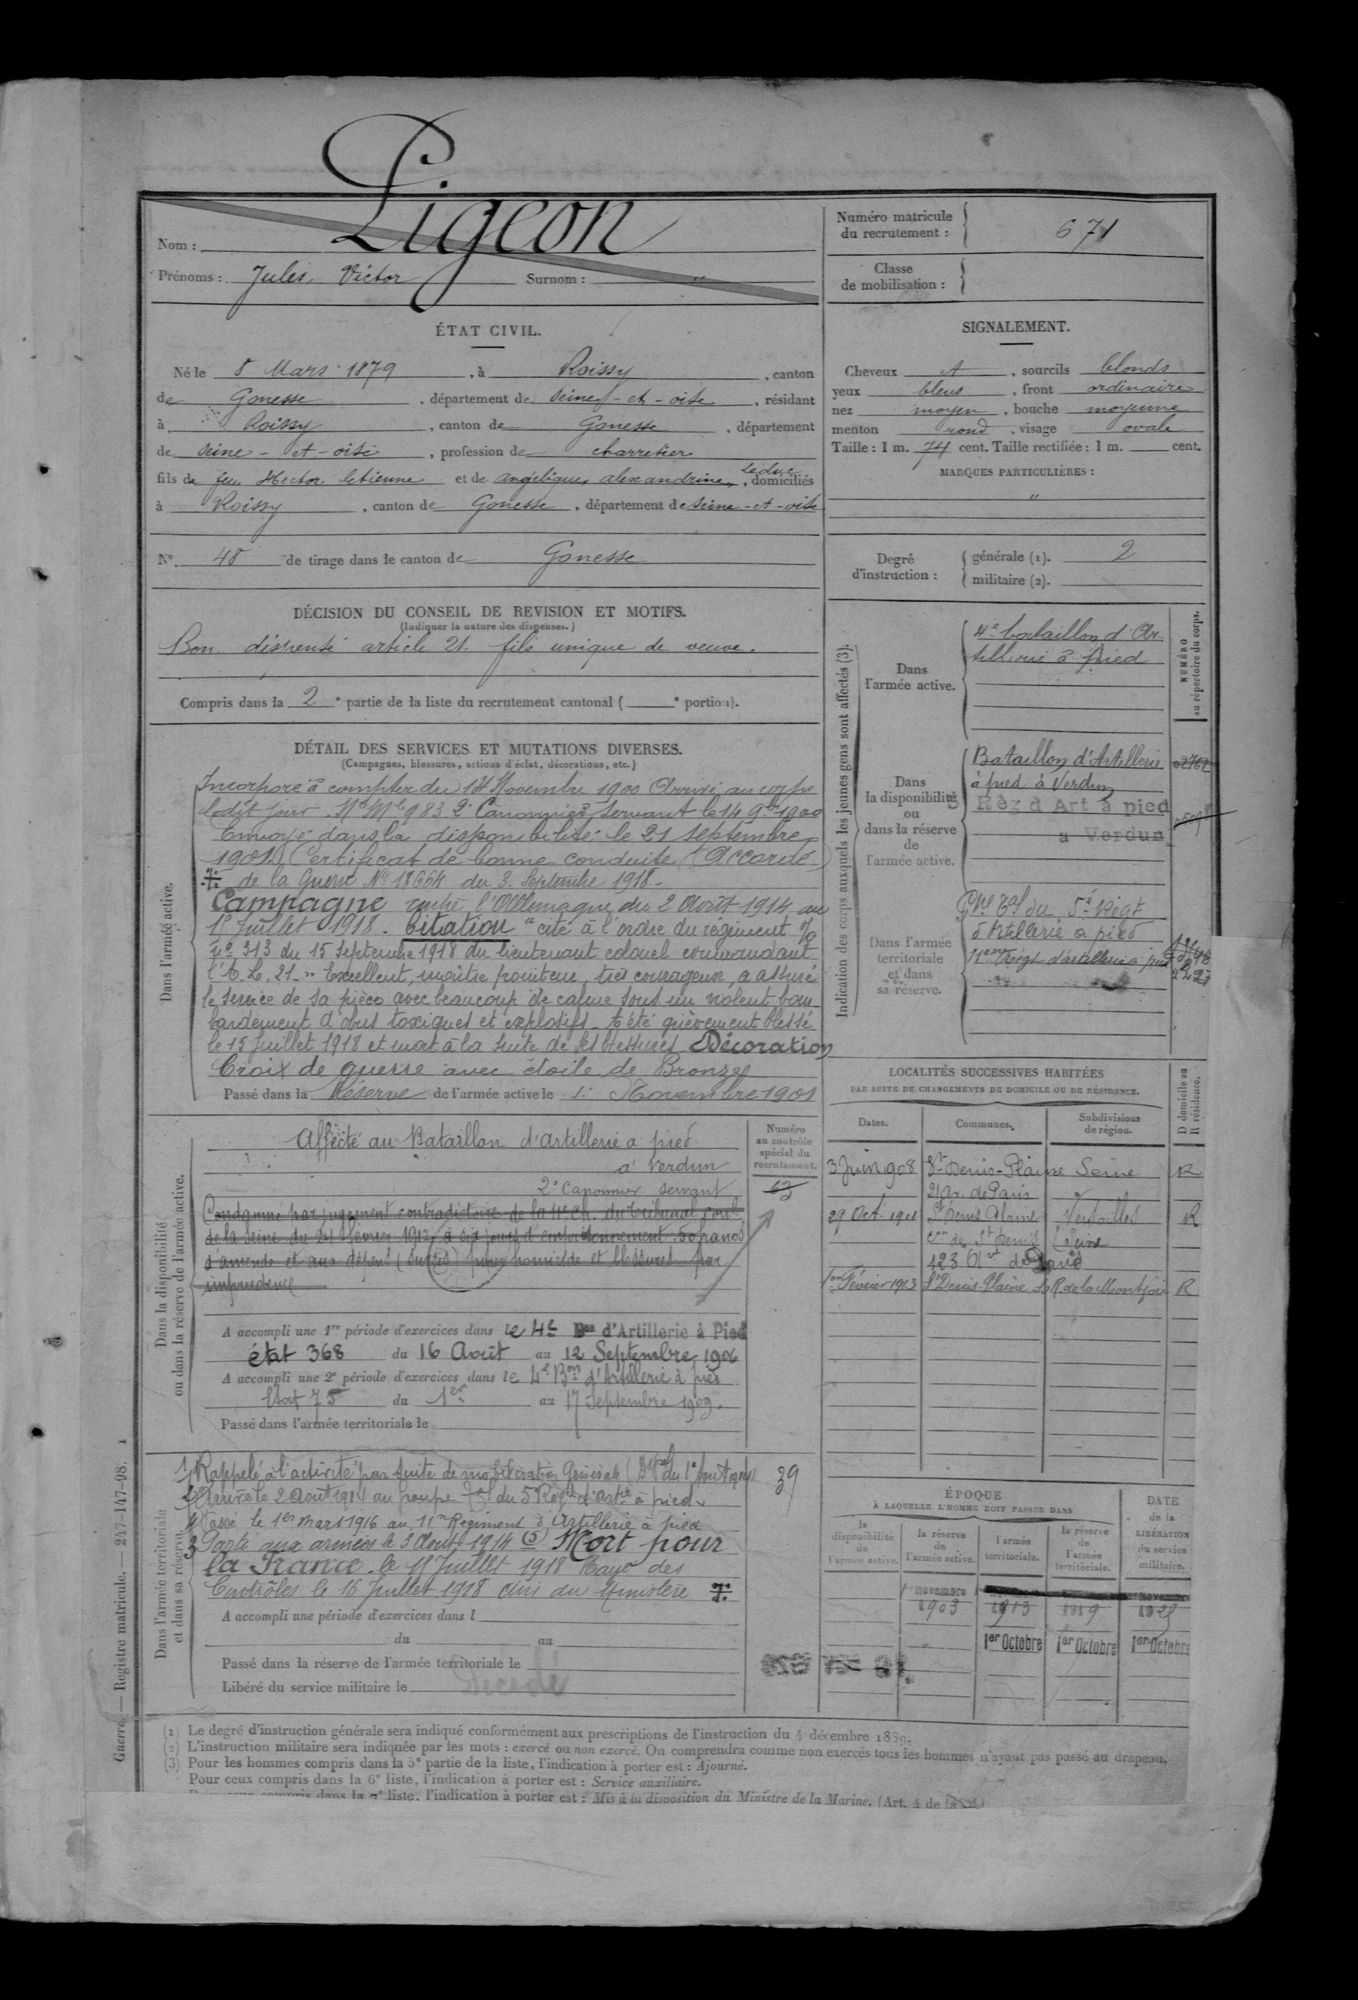 Pigeon
Nom :
Prénoms : Jules, Victor Surnom : "
Numéro matricule
du recrutement : 671
Classe
de mobilisation :
ÉTAT CIVIL.
Né le 8 Mars 1879, à Roissy, canton
de Gonesse, département de Seine-et-oise, résidant
à Roissy, canton de Gonesse, département
de Seine-et-oise, profession de charretier
fils de feu Hector Etienne et de angélique, alexandrine, Leduc, domiciliés
à Roissy, canton de Gonesse, département de Seine-et-oise
N° 48 de tirage dans le canton de Gonesse
SIGNALEMENT.
Cheveux , sourcils blonds
yeux bleus, front ordinaire
nez moyen, bouche moyenne
menton rond, visage ovale
Taille : 1 m. 74 cent. Taille rectifiée : 1 m. cent.
MARQUES PARTICULIÈRES :
"
Degré
d'instruction :
générale (1). 2
militaire (2).
DÉCISION DU CONSEIL DE REVISION ET MOTIFS.
(Indiquer la nature des dispenses.)
Bon dispensé article 21. fils unique de veuve.
Compris dans la 2e partie de la liste du recrutement cantonal ( e portion).
DÉTAIL DES SERVICES ET MUTATIONS DIVERSES.
(Campagnes, blessures, actions d'éclat, décorations, etc.)
Dans l'armée active.
Incorporé à compter du 14 Novembre 1900 Arrivé au corps
ledit jour. No Mle 983 2e Canonnier Servant le 14 9bre 1900
Envoyé dans la disponibilité le 21 septembre
1901. Certificat de bonne conduite (Accordé)
de la Guerre No 18664 du 3 Septembre 1918.-
Campagne contre l'Allemagne du 2 Août 1914 au
15 Juillet 1918. Citation "cité à l'ordre du régiment
No 313 du 15 septembre 1918 du lieutenant colonel commandant
l'A.L. 21. " Excellent maître pointeur, très courageux, a assuré
le service de sa pièce avec beaucoup de calme sous un violent bom
bardement d'obus toxiques et explosifs. A été grièvement blessé
le 15 juillet 1918 et mort à la suite de ses blessures. Décoration
Croix de guerre avec étoile de Bronze
Passé dans la Réserve de l'armée active le 1er Novembre 1901
Indication des corps auxquels les jeunes gens sont affectés (3).
NUMÉRO
au répertoire du corps.
Dans
l'armée active.
4e bataillon d'Ar
tillerie à pied
Dans
la disponibilité
ou
dans la réserve
de
l'armée active.
Bataillon d'Artillerie
à pied à Verdun
Règ d'Art à pied
à Verdun
Dans l'armée
territoriale
et dans
sa réserve.
du 5e Régt
d'Artillerie à pied
11e Regt d'artillerie à pied
Dans la disponibilité
ou dans la réserve de l'armée active.
Affecté au Bataillon d'artillerie à pied
à Verdun
2e canonnier servant
Numéro
au contrôle
spécial du
recrutement.
63
Condamné par jugement contradictoire de la 11e ch. du tribunal corel
de la Seine du 21 février 1912, à six jours d'emprisonnement 50 francs
d'amende et aux dépens (sursis) pour homicide et blessures par
imprudence
A accompli une 1re période d'exercices dans le 4e Bon d'Artillerie à Pied
état 368 du 16 Août au 12 Septembre 1906
A accompli une 2e période d'exercices dans le 4e Bon d'Artillerie à pied
Etat 75 du 1er au 17 Septembre 1909.
Passé dans l'armée territoriale le
LOCALITÉS SUCCESSIVES HABITÉES
PAR SUITE DE CHANGEMENTS DE DOMICILE OU DE RÉSIDENCE.
Dates. Communes. Subdivisions de région. D domicile ou R résidence.
3 Juin 908 St Denis-Plaine Seine R
21 av. de Paris
29 Oct. 1911 St Denis Plaine Versailles R
St Denis Seine
123 Paris
1er Février 1913 St Denis Plaine R. de la Montjoie R
Dans l'armée territoriale
et dans sa réserve.
Rappelé à l'activité par suite de mobilisation Générale (Dépal du 1e Août 1914)
Arrivé le 2 août 1914 au groupe du 5e Regt d'artie à pied
Passé le 1er mars 1916 au 11e Régiment d'Artillerie à pied
Parti aux armées le 3 Août 1914 Mort pour
la France le 15 Juillet 1918 Rayé des
Contrôles le 16 Juillet 1918 avis du Ministère
39
A accompli une période d'exercices dans l
du au
Passé dans la réserve de l'armée territoriale le
Libéré du service militaire le Décédé
ÉPOQUE
À LAQUELLE L'HOMME DOIT PASSER DANS
la disponibilité de l'armée active. la réserve de l'armée active. l'armée territoriale. la réserve de l'armée territoriale. DATE de la LIBÉRATION du service militaire.
Novembre Novembre
1903 1913 1919
1er Octobre 1er Octobre 1er Octobre
Guerre. — Registre matricule. — 247-147-98. 1
(1) Le degré d'instruction générale sera indiqué conformément aux prescriptions de l'instruction du 4 décembre 1889.
(2) L'instruction militaire sera indiquée par les mots : exercé ou non exercé. On comprendra comme non exercés tous les hommes n'ayant pas passé au drapeau.
(3) Pour les hommes compris dans la 5e partie de la liste, l'indication à porter est : Ajourné.
Pour ceux compris dans la 6e liste, l'indication à porter est : Service auxiliaire.
Pour ceux compris dans la 7e liste, l'indication à porter est : Mis à la disposition du Ministre de la Marine. (Art. 4 de la